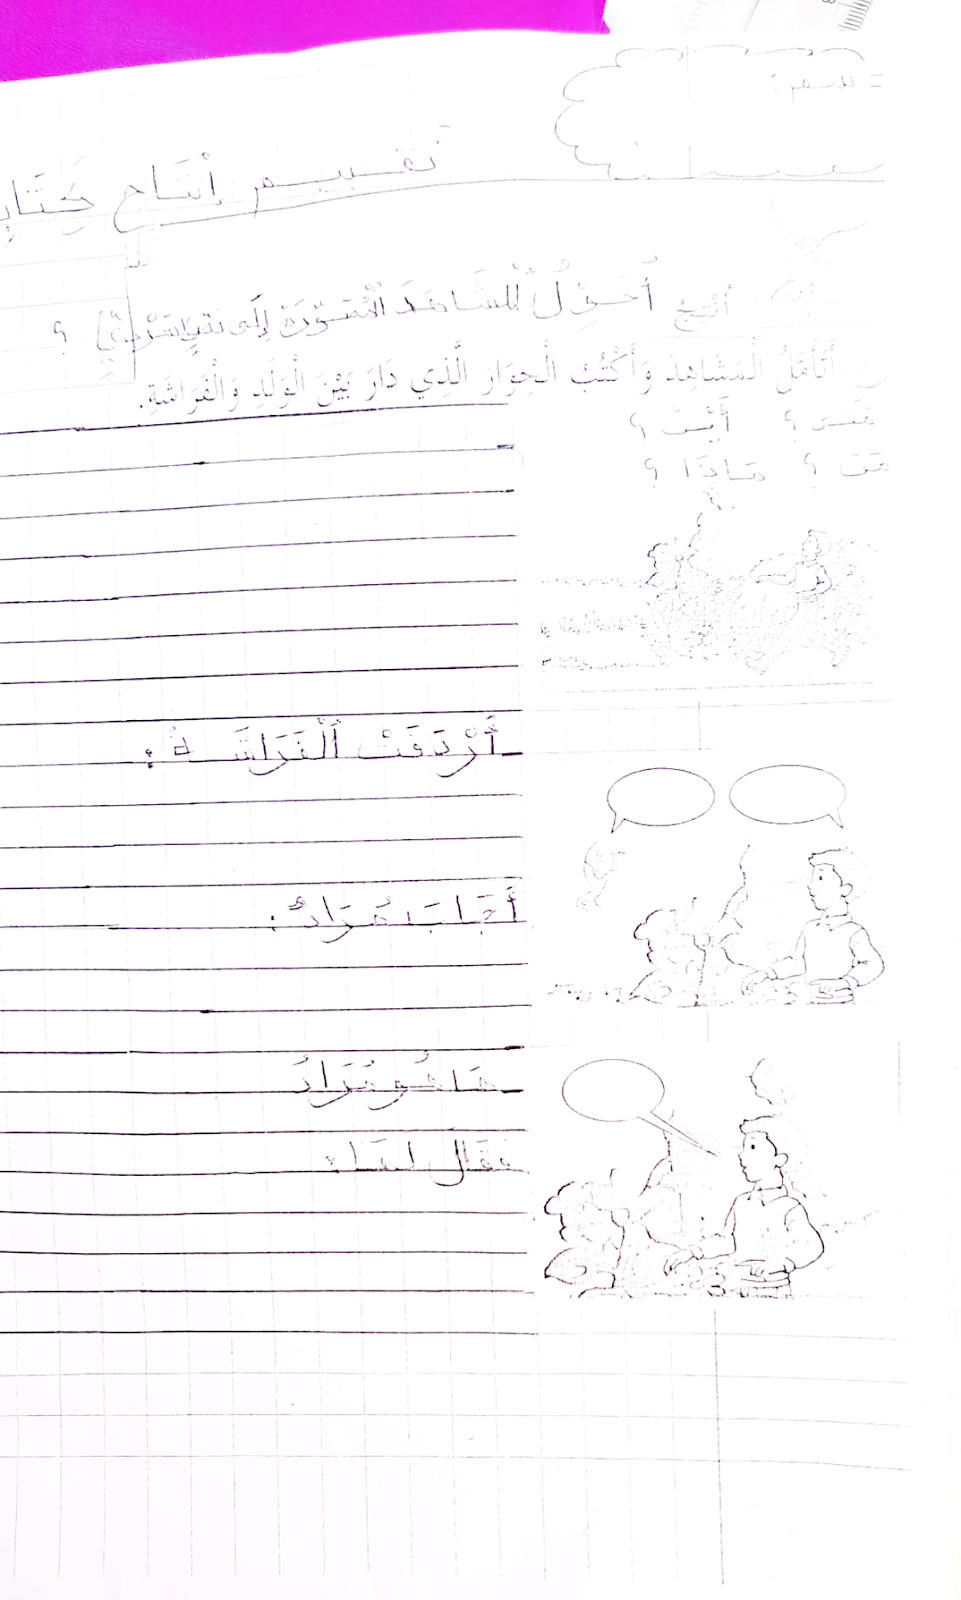 تقييم إنتاج كِتَابـ
أُنْتِجُ أُحَوِّلُ الْمَشَاهِدَ الْمُصَوَّرَةَ إِلَى نَصٍّ سَرْدِيٍّ ؟
أَتَأَمَّلُ الْمَشَاهِدَ وَأَكْتُبُ الْحِوَارَ الَّذِي دَارَ بَيْنَ الْوَلَدِ وَالْفَرَاشَةِ.
مَتَى ؟ أَيْنَ ؟
مَنْ ؟ مَاذَا ؟
أَرْدَفَتْ الْفَرَاشَةُ :
أَجَابَ مُرَادٌ :
هَا هُوَ مُرَادٌ
فَقَالَ لَهَا :